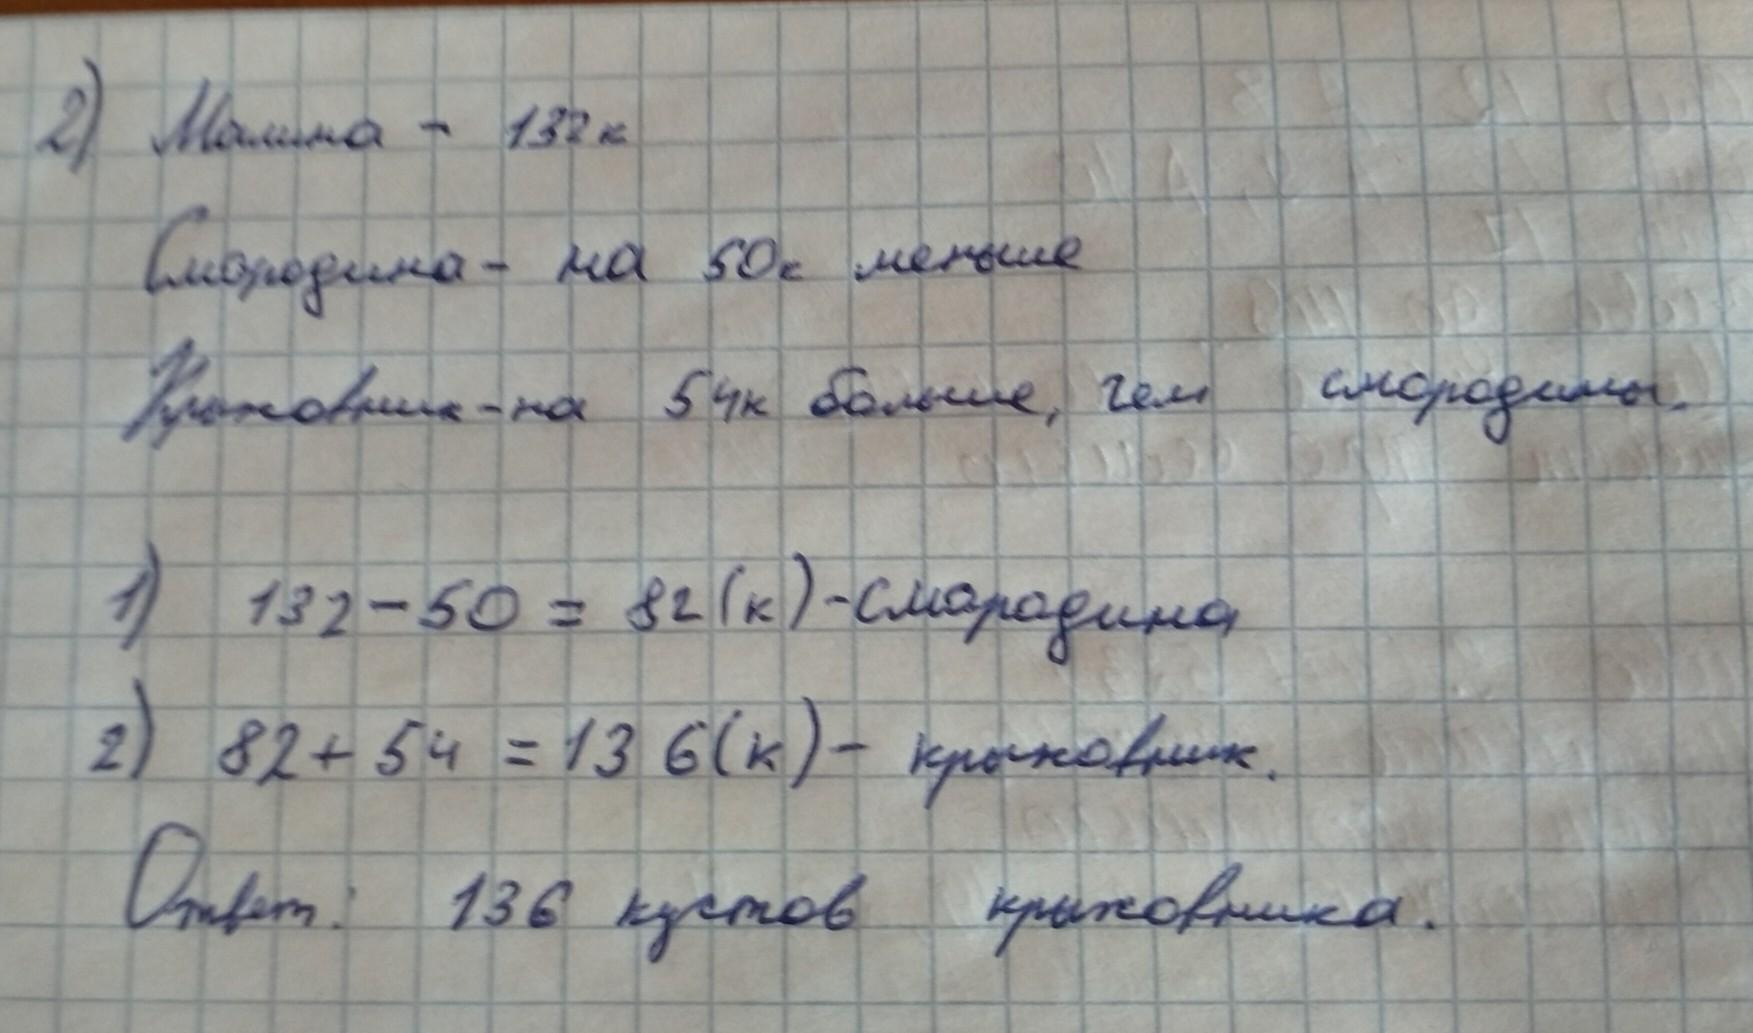 2) Малина - 132к
Смородина - на 50к меньше
Крыжовник - на 54к больше, чем смородины.
1) 132-50 = 82(к)-смородина
2) 82+54 = 136(к)- крыжовник.
Ответ: 136 кустов крыжовника.